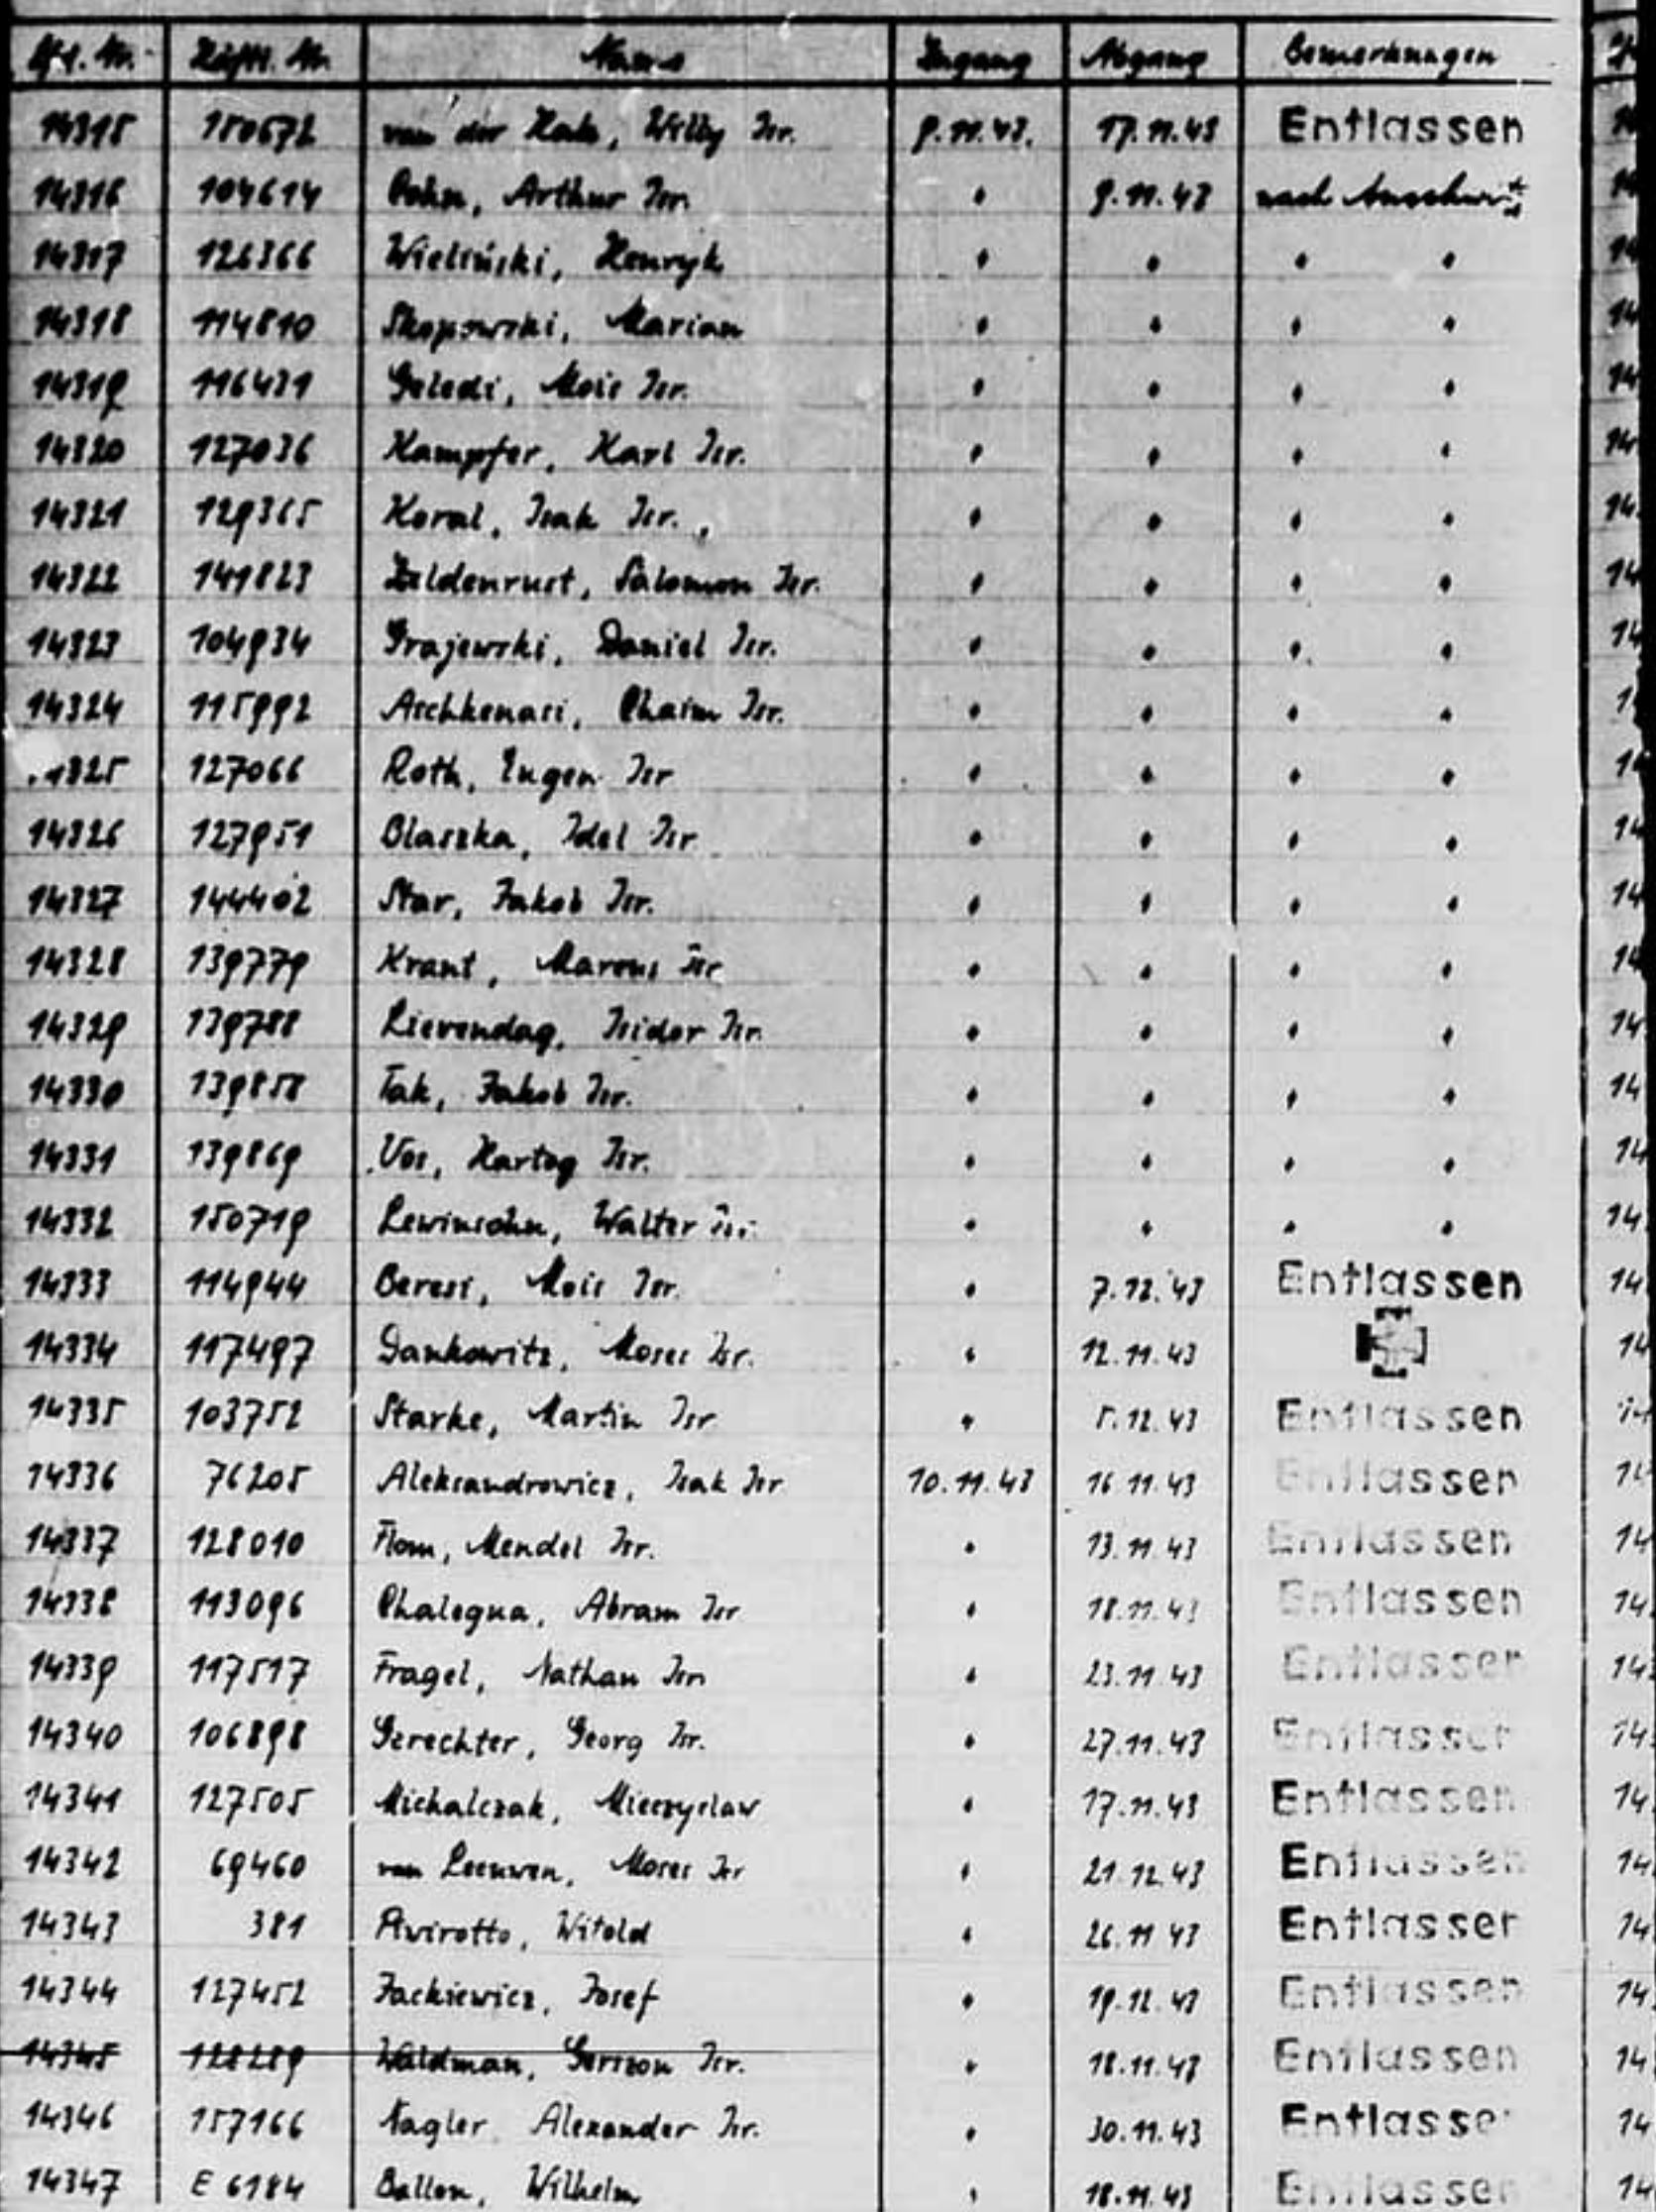 Lfd. Nr. Häftl. Nr. Name Zugang Abgang Bemerkungen
14315 150672 van der Hak, Willy Isr. 9.11.43. 17.11.43 Entlassen
14316 104614 Cohn, Arthur Isr. " 9.11.43 nach Auschwitz
14317 126366 Wieliński, Henryk " " " "
14318 114810 Skopowski, Marian " " " "
14319 116431 Geledi, Mois Isr. " " " "
14320 127036 Kampfer, Karl Isr. " " " "
14321 129365 Koral, Isak Isr. " " " "
14322 141823 Zeldenrust, Salomon Isr. " " " "
14323 104934 Grajewski, Daniel Isr. " " " "
14324 115992 Aschkenasi, Chaim Isr. " " " "
14325 127066 Roth, Eugen Isr " " " "
14326 127951 Blaszka, Idel Isr " " " "
14327 144402 Star, Jakob Isr. " " " "
14328 139779 Krant, Marcus Isr " " " "
14329 139788 Lievendag, Isidor Isr. " " " "
14330 139858 Tak, Jakob Isr. " " " "
14331 139869 Vos, Hartog Isr. " " " "
14332 150719 Lewinsohn, Walter Isr. " " " "
14333 114944 Beresi, Mois Isr. " 7.12.43 Entlassen
14334 117497 Dankowitz, Moses Isr. " 12.11.43
14335 103752 Starke, Martin Isr " 5.12.43 Entlassen
14336 76205 Aleksandrowicz, Isak Isr 10.11.43 16.11.43 Entlassen
14337 128010 Flom, Mendel Isr. " 13.11.43 Entlassen
14338 113096 Chalegua, Abram Isr " 18.11.43 Entlassen
14339 117517 Fragel, Nathan Isr " 23.11.43 Entlassen
14340 106898 Gerechter, Georg Isr. " 27.11.43 Entlassen
14341 127505 Michalczak, Mieczyslaw " 17.11.43 Entlassen
14342 69460 van Leeuwen, Moses Isr " 21.12.43 Entlassen
14343 381 Witold " 26.11.43 Entlassen
14344 127452 Jackiewicz, Josef " 19.12.43 Entlassen
14345 128289 Waldman, Gerszon Isr. " 18.11.43 Entlassen
14346 157166 Nagler Alexander Isr. " 30.11.43 Entlassen
14347 E 6184 Ballon, Wilhelm " 18.11.43 Entlassen